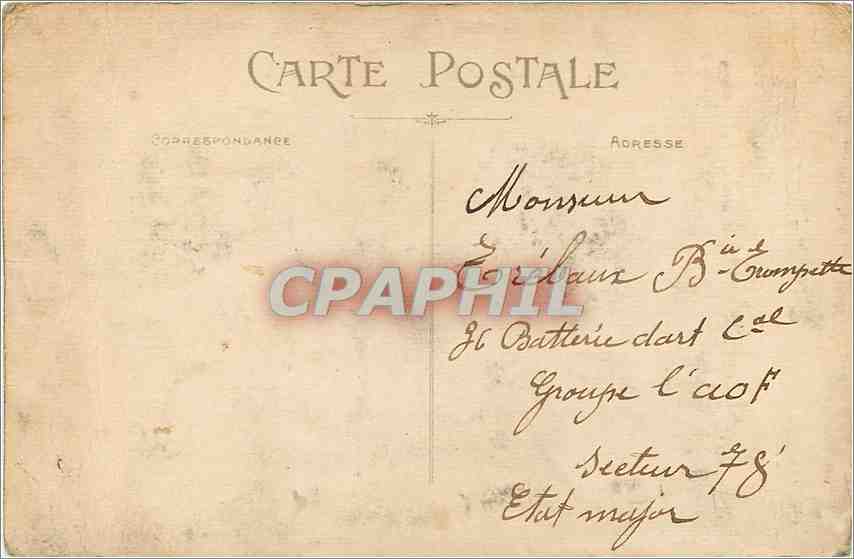 CARTE POSTALE
CORRESPONDANCE
ADRESSE
Monsieur
Trébaux Bie Trompette
CPAPHIL
36 Batterie dart Cal
Groupe l'aoF
Secteur 78
Etat major